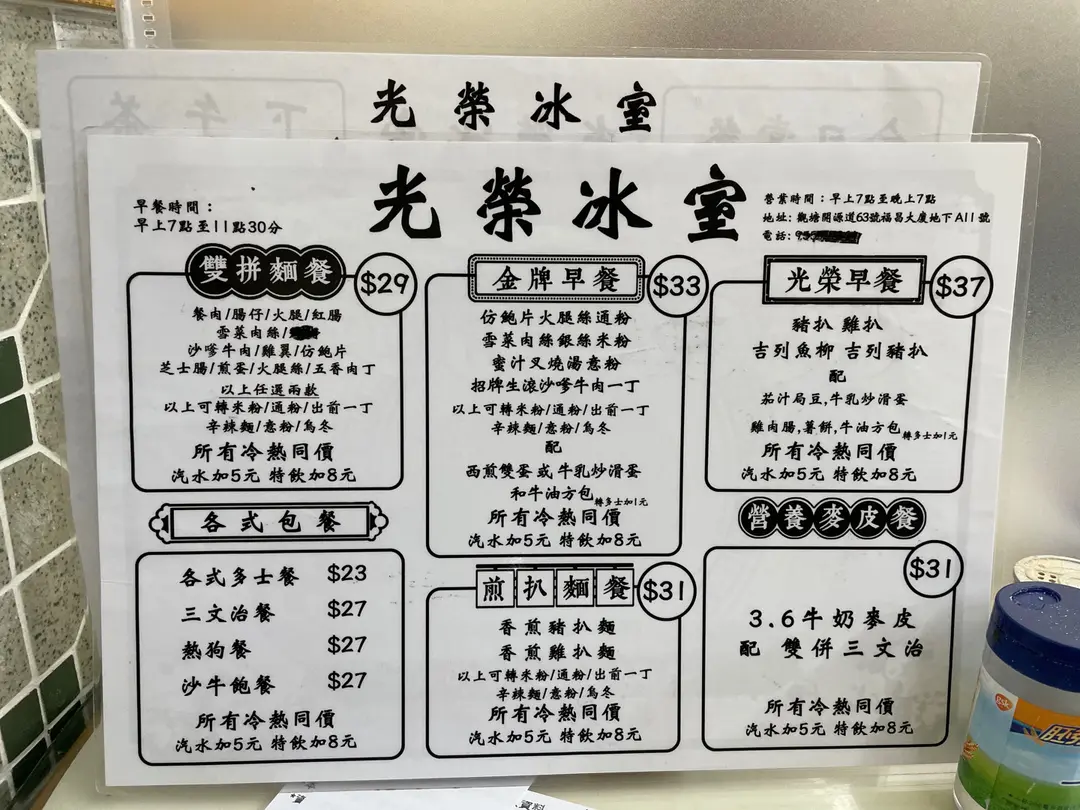 光榮冰室
光榮冰室
早餐時間：
早上7點至11點30分
營業時間：早上7點至晚上7點
地址: 觀塘開源道63號福昌大廈地下A11號
電話:
雙拼麵餐
$29
餐肉/腸仔/火腿/紅腸
雪菜肉絲/
沙嗲牛肉/雞翼/仿鮑片
芝士腸/煎蛋/火腿絲/五香肉丁
以上任選兩款
以上可轉米粉/通粉/出前一丁
辛辣麵/意粉/烏冬
所有冷熱同價
汽水加5元 特飲加8元
各式包餐
各式多士餐 $23
三文治餐 $27
熱狗餐 $27
沙牛飽餐 $27
所有冷熱同價
汽水加5元 特飲加8元
金牌早餐
$33
仿鮑片火腿絲通粉
雪菜肉絲銀絲米粉
蜜汁叉燒湯意粉
招牌生滾沙嗲牛肉一丁
以上可轉米粉/通粉/出前一丁
辛辣麵/意粉/烏冬
配
西煎雙蛋或牛乳炒滑蛋
和牛油方包轉多士加1元
所有冷熱同價
汽水加5元 特飲加8元
煎扒麵餐
$31
香煎豬扒麵
香煎雞扒麵
以上可轉米粉/通粉/出前一丁
辛辣麵/意粉/烏冬
所有冷熱同價
汽水加5元 特飲加8元
光榮早餐
$37
豬扒 雞扒
吉列魚柳 吉列豬扒
配
茄汁局豆,牛乳炒滑蛋
雞肉腸,薯餅,牛油方包轉多士加1元
所有冷熱同價
汽水加5元 特飲加8元
營養麥皮餐
$31
3.6牛奶麥皮
配 雙併三文治
所有冷熱同價
汽水加5元 特飲加8元